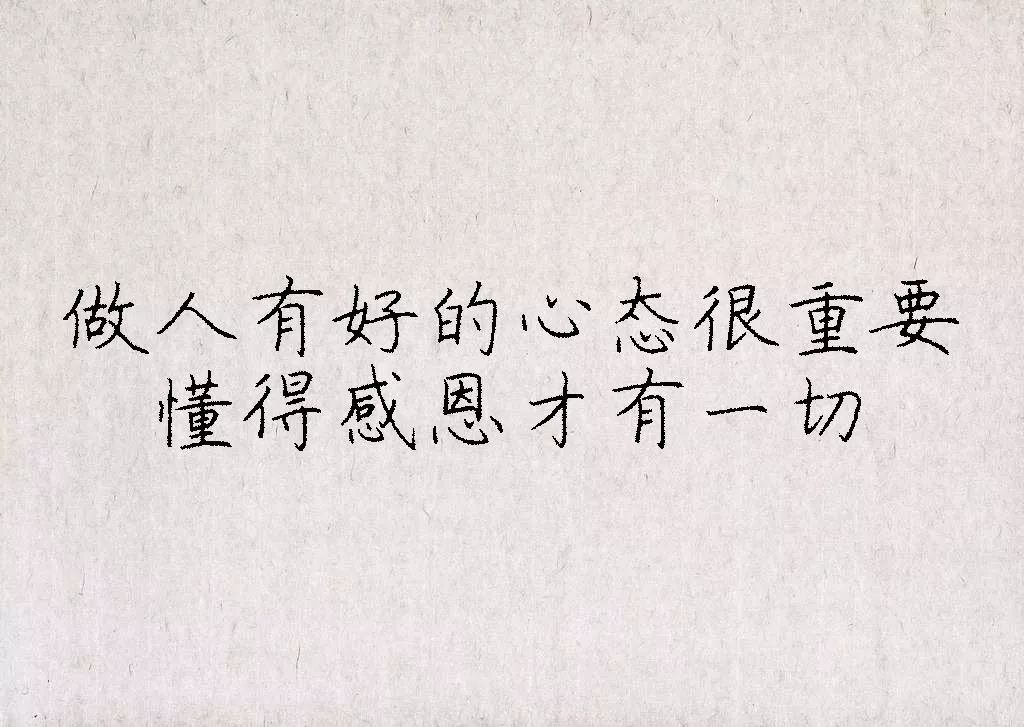 做人有好的心态很重要
懂得感恩才有一切